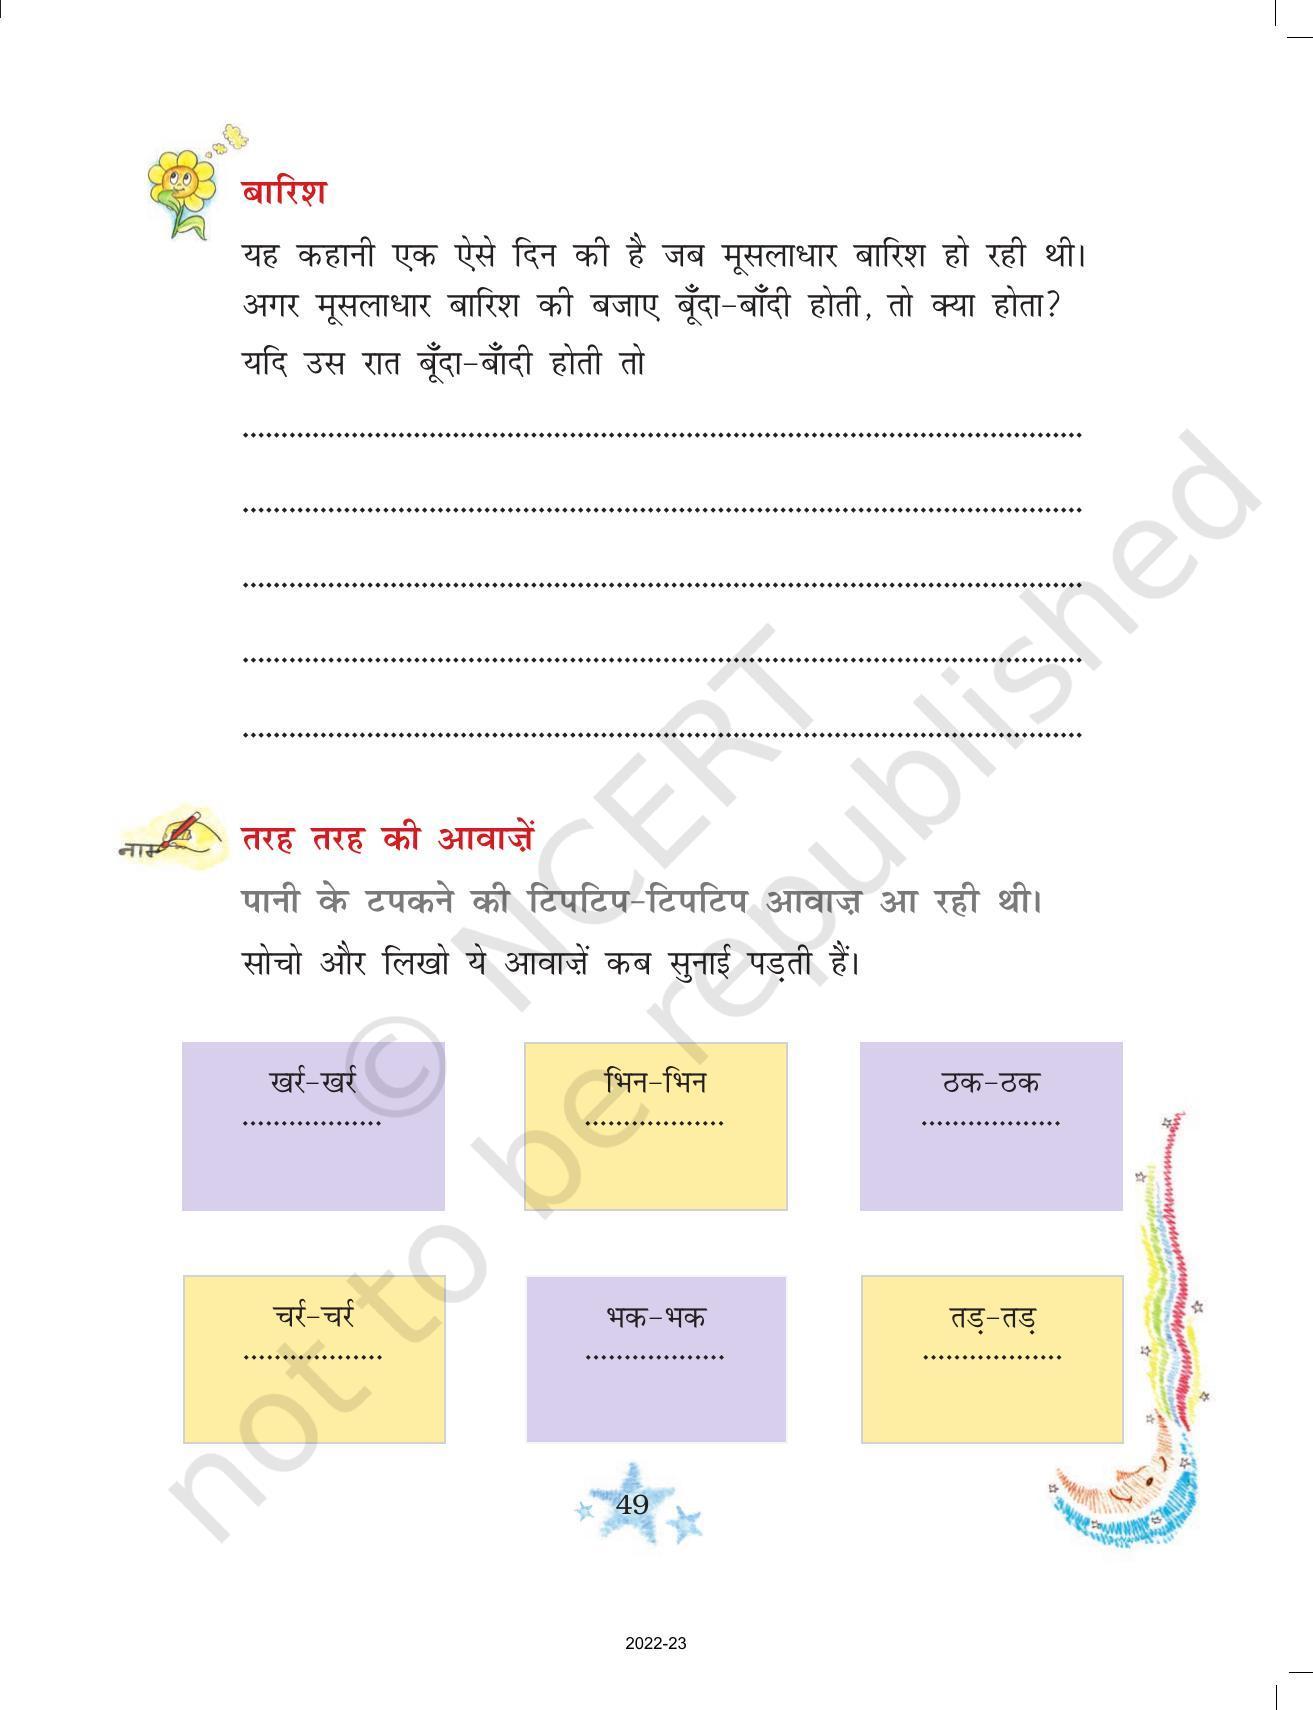 बारिश
यह कहानी एक ऐसे दिन की है जब मूसलाधार बारिश हो रही थी।
अगर मूसलाधार बारिश की बजाए बूँदा-बाँदी होती, तो क्या होता?
यदि उस रात बूँदा-बाँदी होती तो
नाम
तरह तरह की आवाज़ें
पानी के टपकने की टिपटिप-टिपटिप आवाज़ आ रही थी।
सोचो और लिखो ये आवाज़ें कब सुनाई पड़ती हैं।
खर्र-खर्र
भिन-भिन
ठक-ठक
चर्र-चर्र
भक-भक
तड़-तड़
49
2022-23
© NCERT
not to be republished